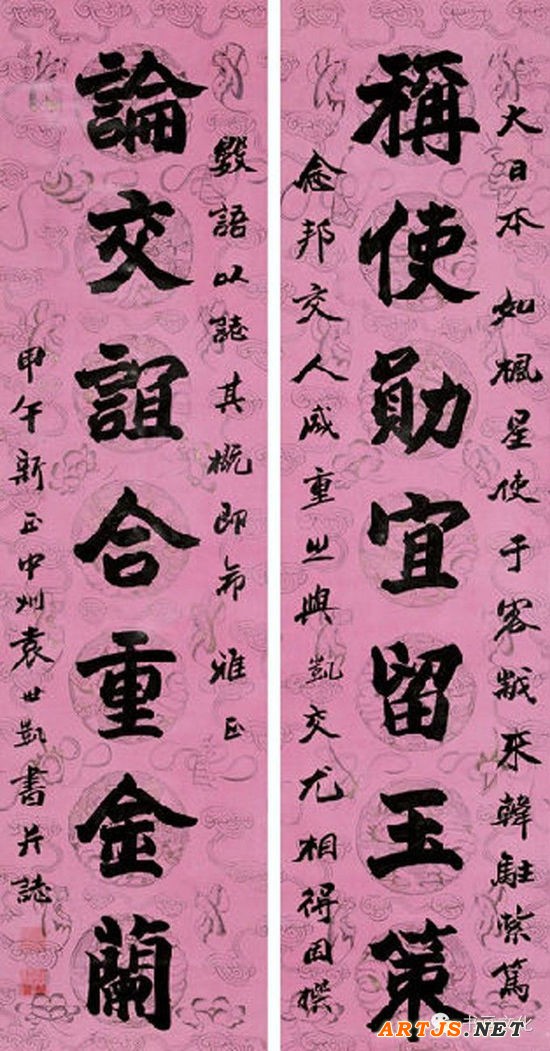 大日本 如楓星使于客秋来韓駐紮篤
稱使勛宜留玉策
念邦交人咸重之與凱交尤相得因撰
數語以誌其概即希 雅正
論交誼合重金蘭
甲午新正中州袁世凱書并誌
ARTJS.NET